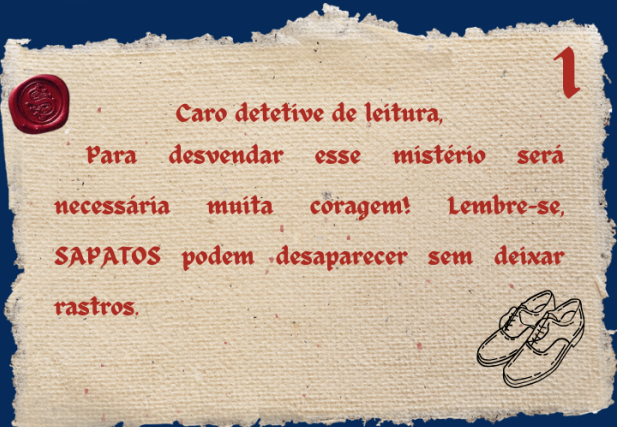 1
Caro detetive de leitura,
Para desvendar esse mistério será
necessária muita coragem! Lembre-se,
SAPATOS podem desaparecer sem deixar
rastros.